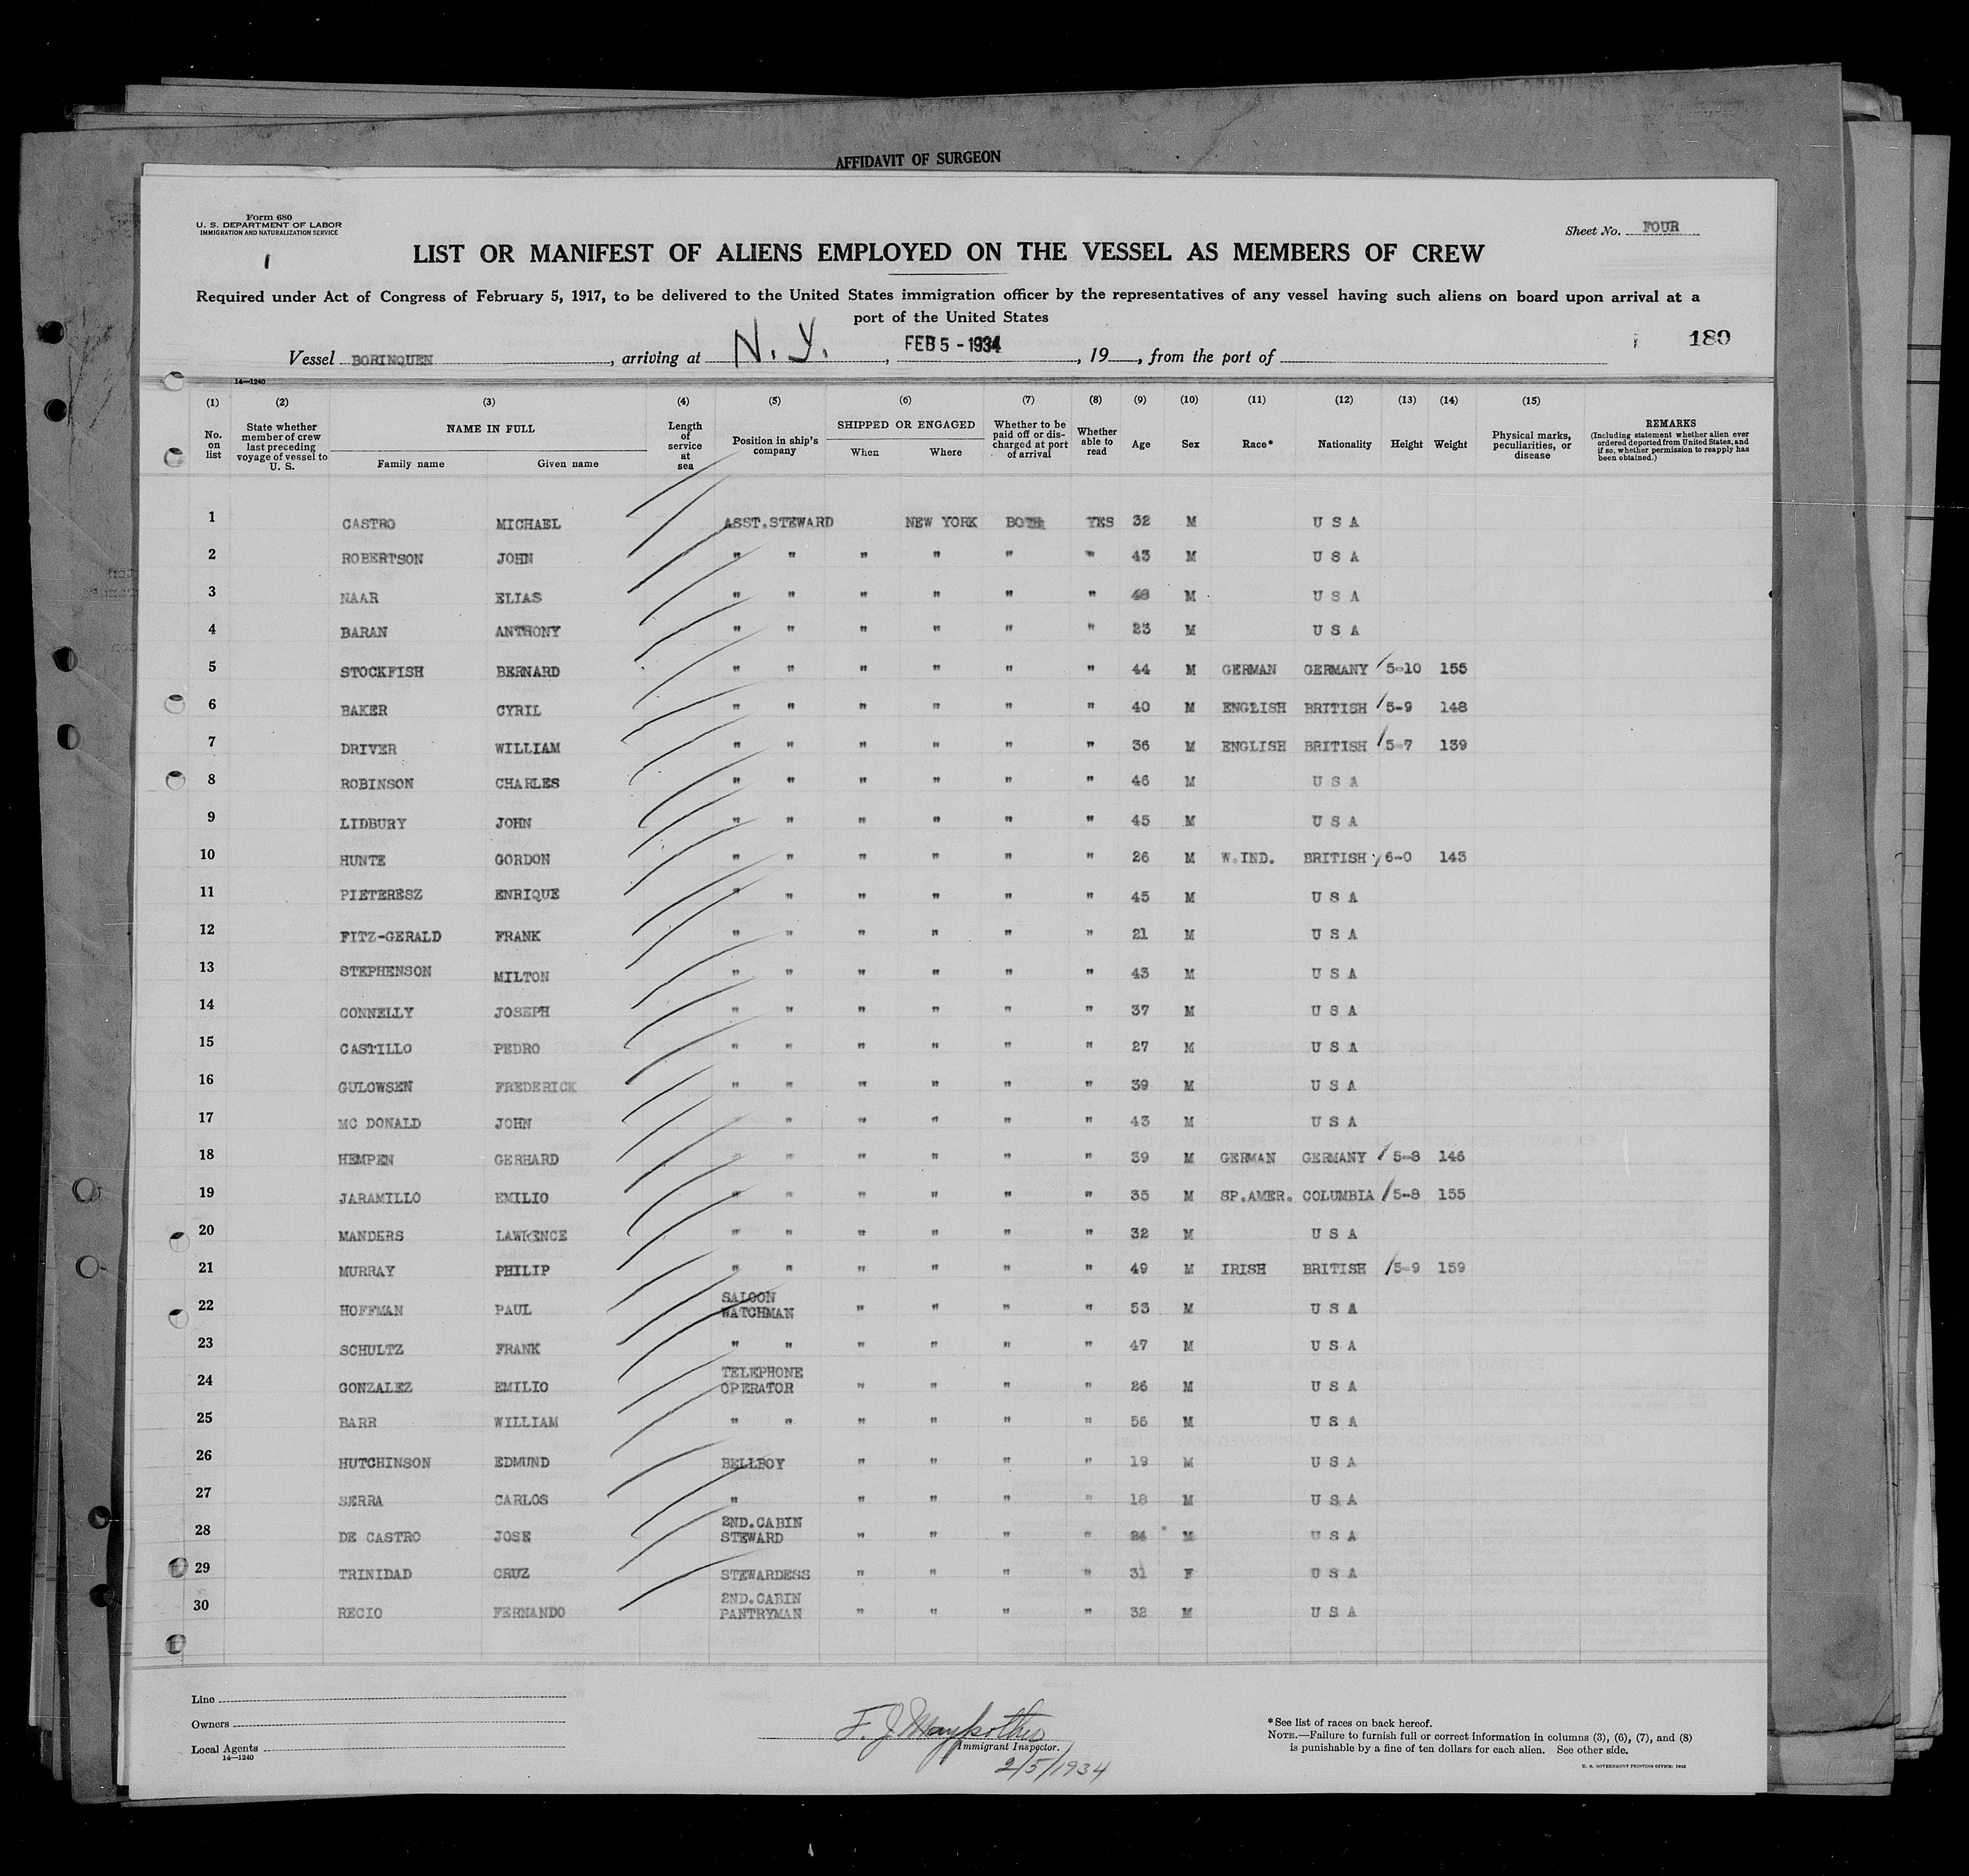 AFFIDAVIT OF SURGEON
Form 680
U. S. DEPARTMENT OF LABOR
IMMIGRATION AND NATURALIZATION SERVICE
Sheet No. FOUR
LIST OR MANIFEST OF ALIENS EMPLOYED ON THE VESSEL AS MEMBERS OF CREW
Required under Act of Congress of February 5, 1917, to be delivered to the United States immigration officer by the representatives of any vessel having such aliens on board upon arrival at a
port of the United States
180
Vessel BORINQUEN, arriving at N. Y., FEB 5 - 1934, 19__, from the port of
14—1240
(1) (2) (3) (4) (5) (6) (7) (8) (9) (10) (11) (12) (13) (14) (15)
No. on list
State whether member of crew last preceding voyage of vessel to U. S.
NAME IN FULL
Family name Given name
Length of service at sea
Position in ship's company
SHIPPED OR ENGAGED
When Where
Whether to be paid off or discharged at port of arrival
Whether able to read
Age Sex Race* Nationality Height Weight
Physical marks, peculiarities, or disease
REMARKS
(Including statement whether alien ever ordered deported from United States, and if so, whether permission to reapply has been obtained.)
1 CASTRO MICHAEL ASST.STEWARD NEW YORK BOTH YES 32 M U S A
2 ROBERTSON JOHN " " " " " " 43 M U S A
3 NAAR ELIAS " " " " " " 48 M U S A
4 BARAN ANTHONY " " " " " " 23 M U S A
5 STOCKFISH BERNARD " " " " " " 44 M GERMAN GERMANY 5-10 155
6 BAKER CYRIL " " " " " " 40 M ENGLISH BRITISH 5-9 148
7 DRIVER WILLIAM " " " " " " 36 M ENGLISH BRITISH 5-7 139
8 ROBINSON CHARLES " " " " " " 46 M U S A
9 LIDBURY JOHN " " " " " " 45 M U S A
10 HUNTE GORDON " " " " " " 26 M W.IND. BRITISH 6-0 143
11 PIETERESZ ENRIQUE " " " " " " 45 M U S A
12 FITZ-GERALD FRANK " " " " " " 21 M U S A
13 STEPHENSON MILTON " " " " " " 43 M U S A
14 CONNELLY JOSEPH " " " " " " 37 M U S A
15 CASTILLO PEDRO " " " " " " 27 M U S A
16 GULOWSEN FREDERICK " " " " " " 39 M U S A
17 MC DONALD JOHN " " " " " " 43 M U S A
18 HEMPEN GERHARD " " " " " " 39 M GERMAN GERMANY 5-8 146
19 JARAMILLO EMILIO " " " " " " 35 M SP.AMER. COLUMBIA 5-8 155
20 MANDERS LAWRENCE " " " " " " 32 M U S A
21 MURRAY PHILIP " " " " " " 49 M IRISH BRITISH 5-9 159
22 HOFFMAN PAUL SALOON WATCHMAN " " " " 53 M U S A
23 SCHULTZ FRANK " " " " " " 47 M U S A
24 GONZALEZ EMILIO TELEPHONE OPERATOR " " " " 26 M U S A
25 BARR WILLIAM " " " " " " 56 M U S A
26 HUTCHINSON EDMUND BELLBOY " " " " 19 M U S A
27 SERRA CARLOS " " " " " 18 M U S A
28 DE CASTRO JOSE 2ND.CABIN STEWARD " " " " 24 M U S A
29 TRINIDAD CRUZ STEWARDESS " " " " 31 F U S A
30 RECIO FERNANDO 2ND.CABIN PANTRYMAN " " " " 32 M U S A
Line
Owners
Local Agents
14—1240
F. J.
Immigrant Inspector.
2/5/1934
*See list of races on back hereof.
NOTE.—Failure to furnish full or correct information in columns (3), (6), (7), and (8)
is punishable by a fine of ten dollars for each alien. See other side.
U. S. GOVERNMENT PRINTING OFFICE: